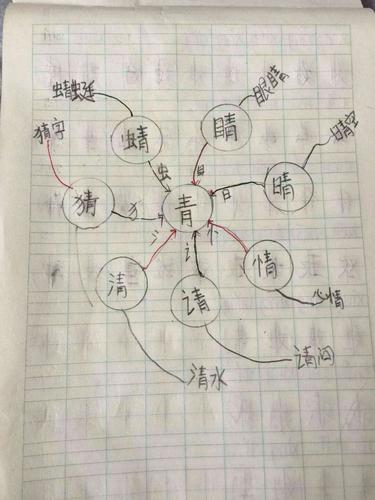 蜻蜓
眼睛
猜字
蜻
睛
晴空
虫
目
晴
猜
犭
青
日
氵
讠
忄
清
请
情
心情
清水
请问